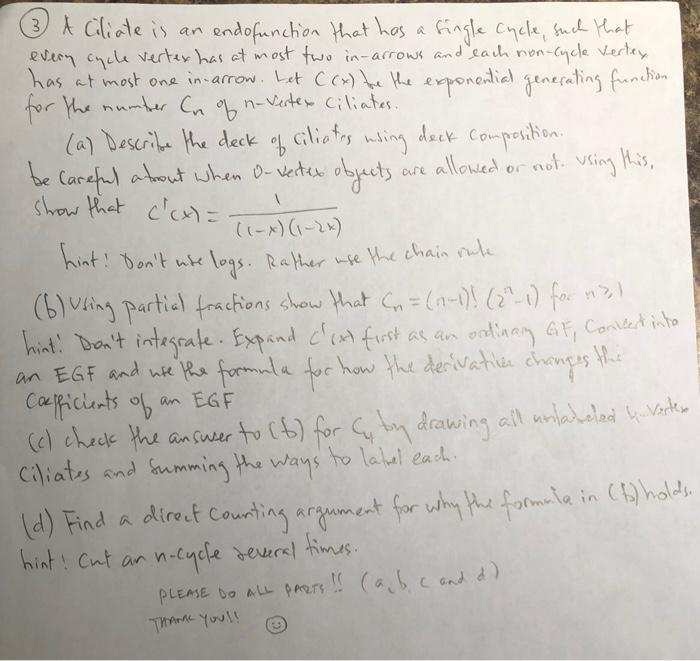 ③ A Ciliate is an endofunction that has a single cycle, such that
every cycle vertex has at most two in-arrows and each non-cycle vertex
has at most one in-arrow. Let C(x) be the exponential generating function
for the number Cn of n-vertex ciliates.
(a) Describe the deck of ciliates using deck composition.
be careful about when 0-vertex objects are allowed or not. Using this,
show that C'(x) = 1/((1-x)(1-2x))
hint! Don't use logs. Rather use the chain rule
(b) Using partial fractions show that Cn = (n-1)! (2^n-1) for n≥1
hint! Don't integrate. Expand C'(x) first as an ordinary GF, Convert into
an EGF and use the formula for how the derivative changes the
Coefficients of an EGF
(c) check the answer to (b) for C4 by drawing all unlabeled 4-vertex
Ciliates and summing the ways to label each.
(d) Find a direct counting argument for why the formula in (b) holds.
hint! Cut an n-cycle several times.
PLEASE DO ALL PARTS!! (a, b, c and d)
THANK YOU!!